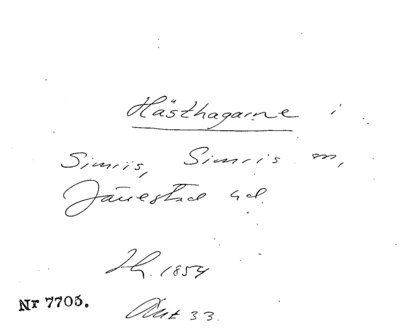 Hästhagarne i
Simris, Simris m,
Järrestad hd
Jh. 1854
Akt 33.
Nr 7705.